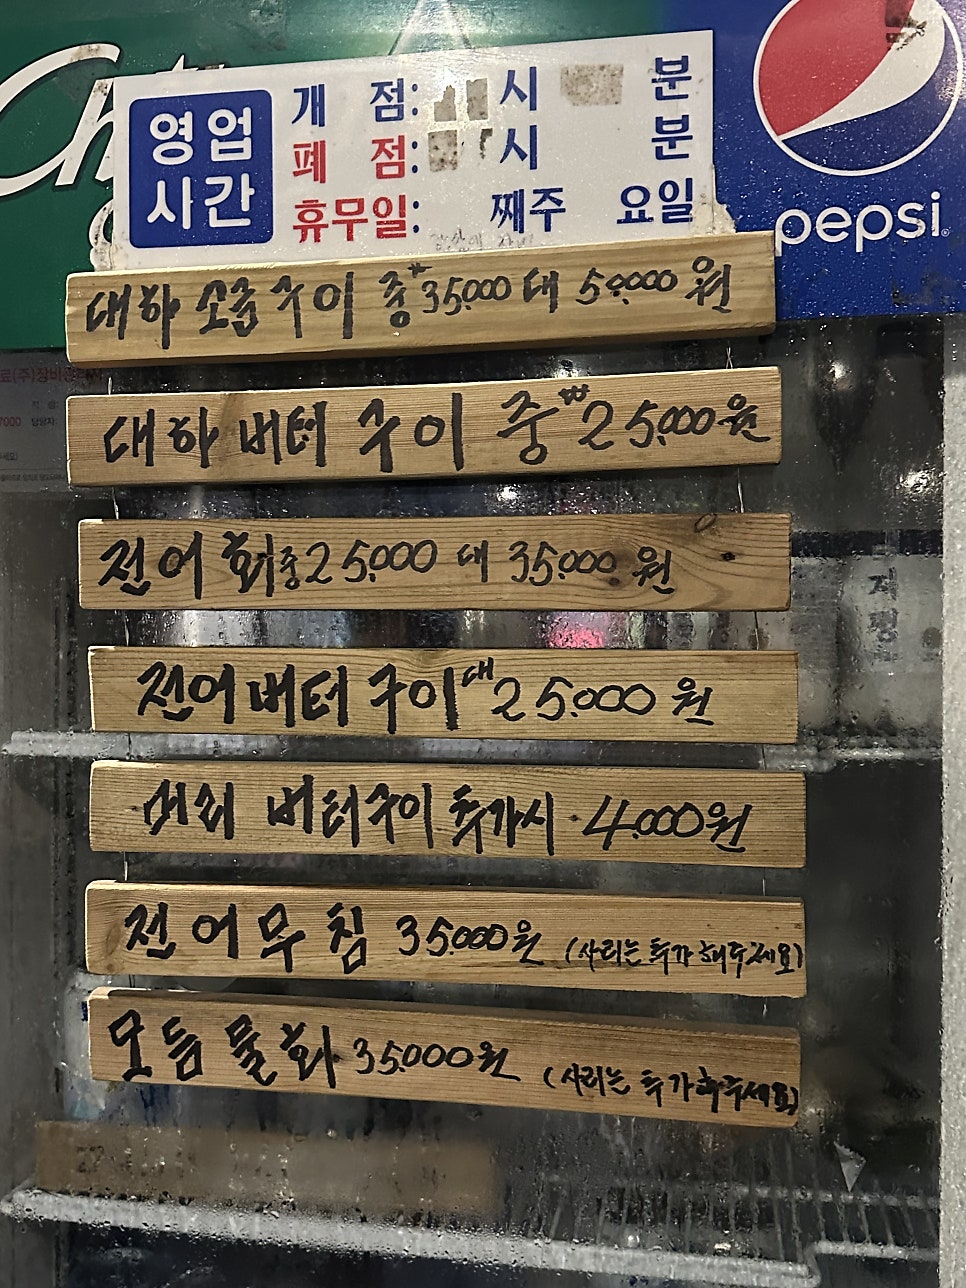 영업
시간
개 점: 시 분
폐 점: 시 분
휴무일: 째주 요일
pepsi
대하 소금구이 중₩35,000 대 50,000원
대하 버터 구이 중₩25,000원
전어 회 중25,000 대 35,000원
전어버터구이 대 25,000원
머리 버터구이 추가시 4,000원
전어무침 35,000원 (사리는 추가해주세요)
모듬물회 35,000원 (사리는 추가해주세요)
지평